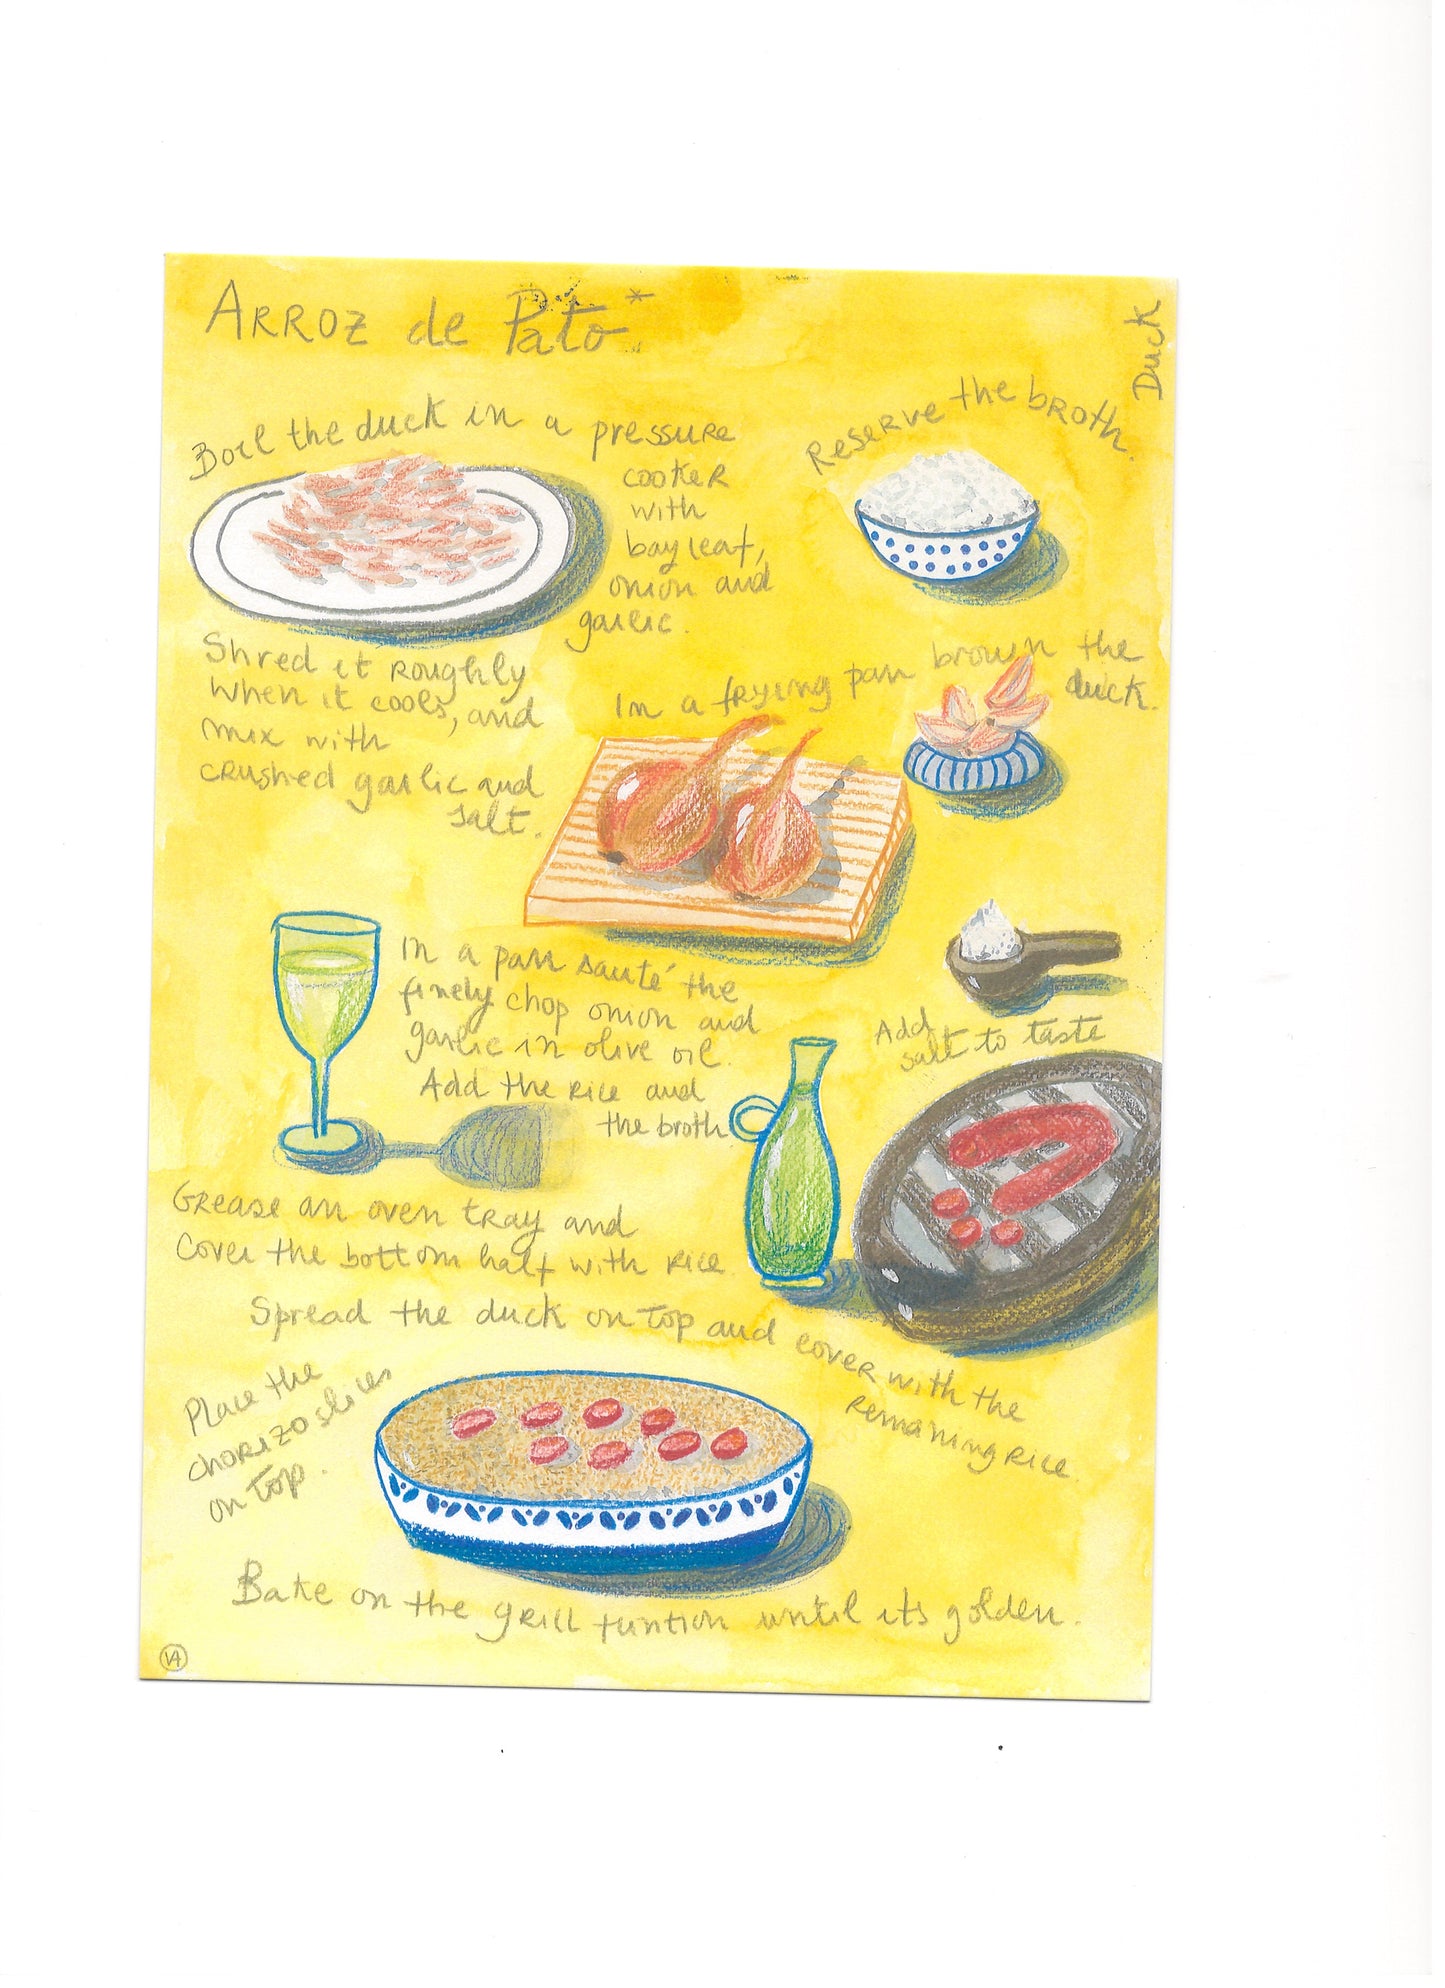 ARROZ de Pato*
Duck
Boil the duck in a pressure
cooker
with
bay leaf,
onion and
garlic.
Reserve the broth.
Shred it roughly
when it cools, and
mix with
crushed garlic and
salt.
In a frying pan brown the
duck.
In a pan sauté the
finely chop onion and
garlic in olive oil.
Add the rice and
the broth
Add
salt to taste
Grease an oven tray and
Cover the bottom half with rice.
Spread the duck on top and cover with the
remaning rice.
Place the
chorizo slices
on top.
Bake on the grill funtion until its golden.
VA